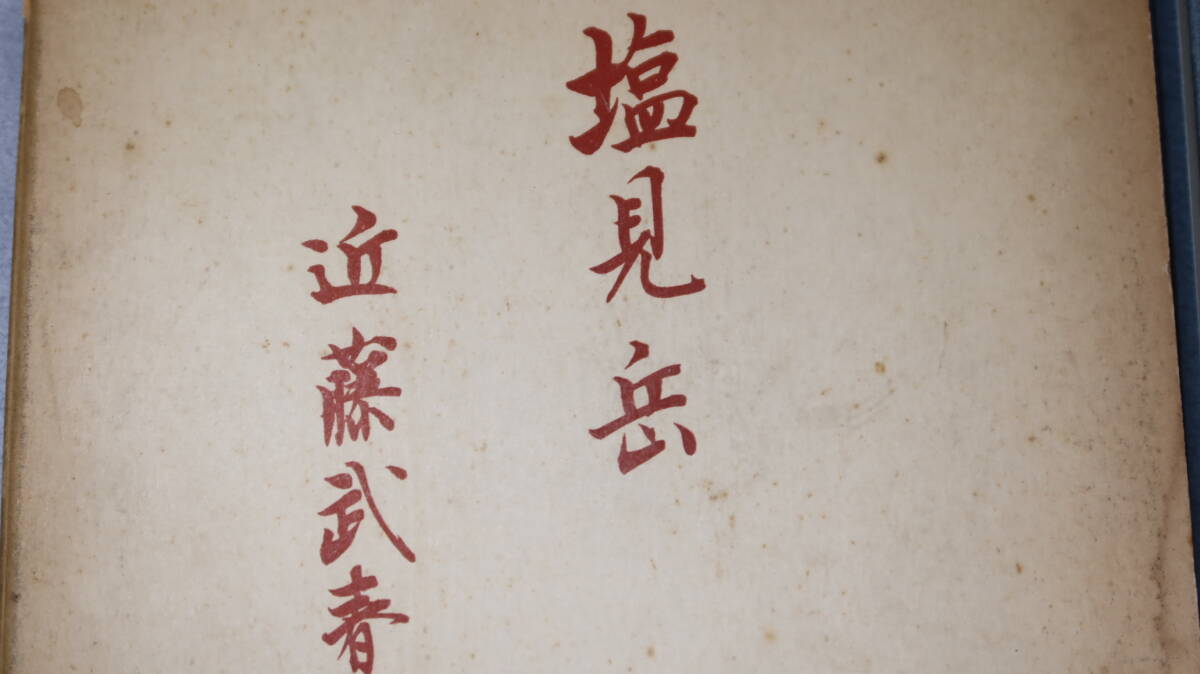 塩見岳
近藤武春